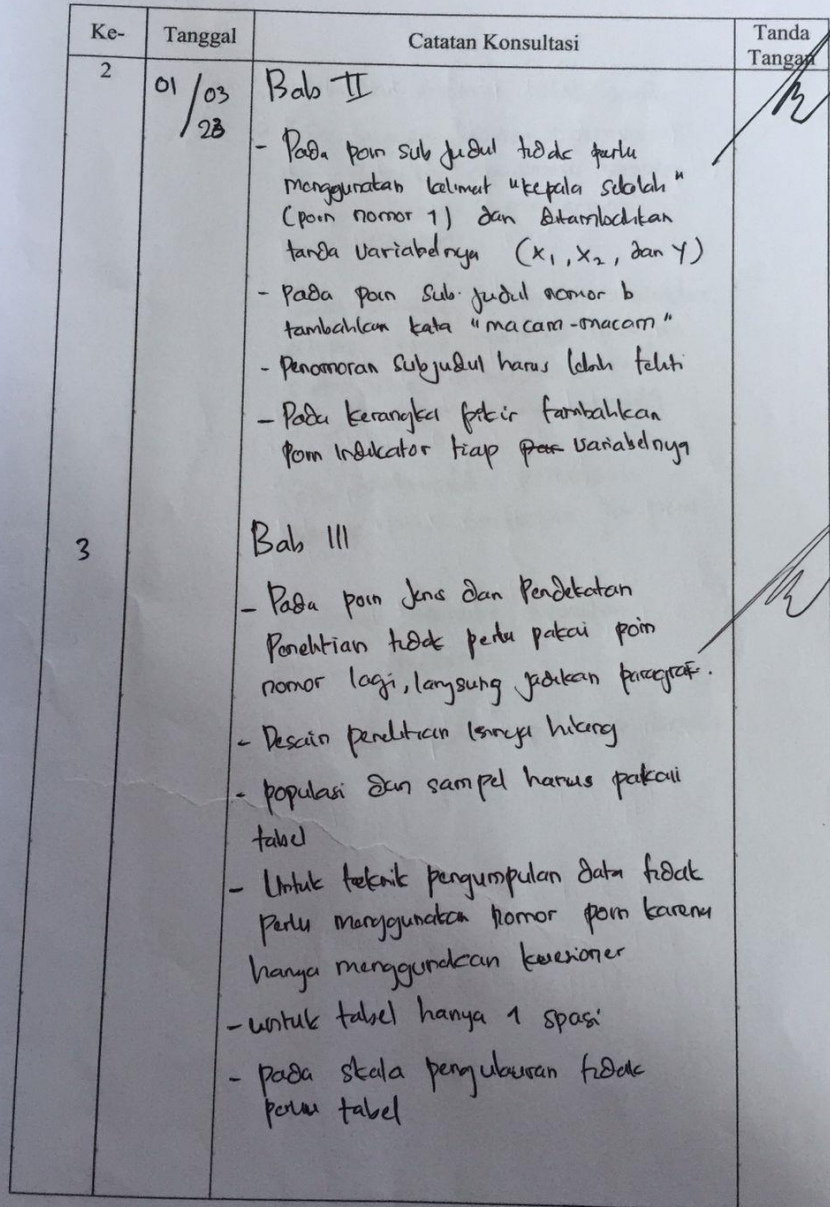 Ke-
Tanggal
Catatan Konsultasi
Tanda
Tangan
2
01/03
23
Bab II
- Pada poin sub judul tidak perlu
menggunakan kalimat "kepala sekolah"
(poin nomor 1) dan ditambahkan
tanda variabelnya (X1, X2, dan Y)
- Pada poin sub judul nomor b
tambahkan kata "macam-macam"
- Penomoran subjudul harus lebih teliti
- Pada kerangka pikir tambahkan
poin Indikator tiap variabelnya
3
Bab III
- Pada poin Jenis dan Pendekatan
Penelitian tidak perlu pakai poin
nomor lagi, langsung jadikan paragraf.
- Desain penelitian isinya hilang
- populasi dan sampel harus pakai
tabel
- Untuk teknik pengumpulan data tidak
perlu menggunakan nomor poin karena
hanya menggunakan kuesioner
- untuk tabel hanya 1 spasi
- pada skala pengukuran tidak
perlu tabel